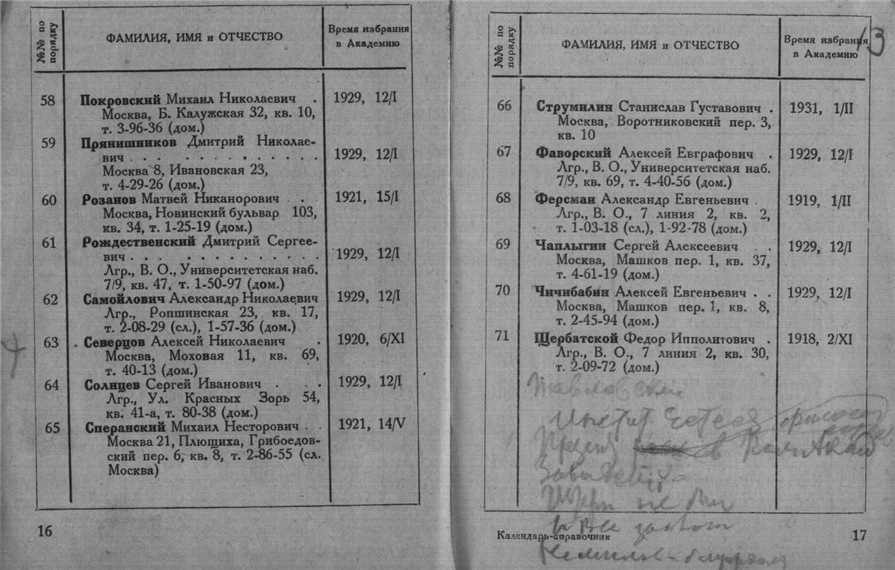 №№ по порядку
ФАМИЛИЯ, ИМЯ и ОТЧЕСТВО
Время избрания в Академию
58 Покровский Михаил Николаевич . 1929, 12/I
Москва, Б. Калужская 32, кв. 10,
т. 3-96-36 (дом.)
59 Прянишников Дмитрий Николае-
вич . . . . . . . . . . . . . . 1929, 12/I
Москва 8, Ивановская 23,
т. 4-29-26 (дом.)
60 Розанов Матвей Никанорович . 1921, 15/I
Москва, Новинский бульвар 103,
кв. 34, т. 1-25-19 (дом.)
61 Рождественский Дмитрий Сергее-
вич . . . . . . . . . . . . . . 1929, 12/I
Лгр., В. О., Университетская наб.
7/9, кв. 47, т. 1-50-97 (дом.)
62 Самойлович Александр Николаевич 1929, 12/I
Лгр., Ропшинская 23, кв. 17,
т. 2-08-29 (сл.), 1-57-36 (дом.)
63 Северцов Алексей Николаевич . 1920, 6/XI
Москва, Моховая 11, кв. 69,
т. 40-13 (дом.)
64 Солнцев Сергей Иванович . . . 1929, 12/I
Лгр., Ул. Красных Зорь 54,
кв. 41-а, т. 80-38 (дом.)
65 Сперанский Михаил Несторович . . 1921, 14/V
Москва 21, Плющиха, Грибоедов-
ский пер. 6, кв. 8, т. 2-86-55 (сл.
Москва)
16
№№ по порядку
ФАМИЛИЯ, ИМЯ и ОТЧЕСТВО
Время избрания в Академию
13
66 Струмилин Станислав Густавович . 1931, 1/II
Москва, Воротниковский пер. 3,
кв. 10
67 Фаворский Алексей Евграфович . 1929, 12/I
Лгр., В. О., Университетская наб.
7/9, кв. 69, т. 4-40-56 (дом.)
68 Ферсман Александр Евгеньевич . 1919, 1/II
Лгр., В. О., 7 линия 2, кв. 2,
т. 1-03-18 (сл.), 1-92-78 (дом.)
69 Чаплыгин Сергей Алексеевич . . 1929, 12/I
Москва, Машков пер. 1, кв. 37,
т. 4-61-19 (дом.)
70 Чичибабин Алексей Евгеньевич . . 1929, 12/I
Москва, Машков пер. 1, кв. 8,
т. 2-45-94 (дом.)
71 Щербатской Федор Ипполитович . 1918, 2/XI
Лгр., В. О., 7 линия 2, кв. 30,
т. 2-09-72 (дом.)
Календарь-справочник
17